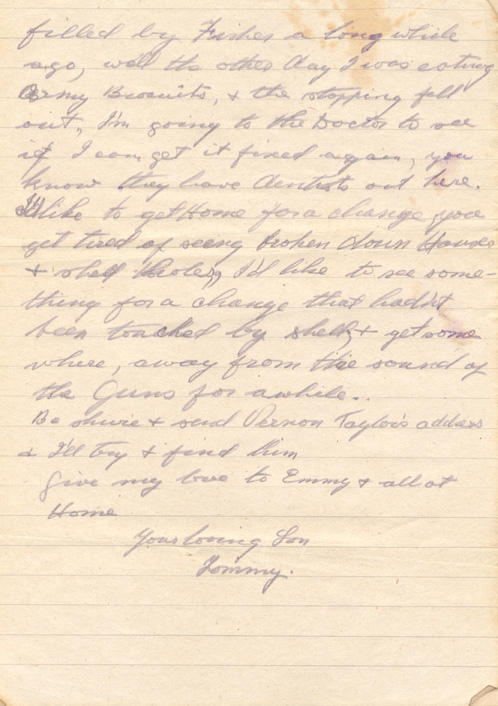 filled by Fisher a long while
ago, well the other day I was eating
Army Biscuits, & the stopping fell
out, I'm going to the Doctor to see
if I can get it fixed again, you
know they have dentists out here.
I'd like to get Home for a change you
get tired of seeing broken down Houses
& shell holes, I'd like to see some-
thing for a change that hadn't
been touched by shells, & get some
where, away from the sound of
the Guns for awhile..
Be shure & send Vernon Taylor's address
& I'll try & find him
Give my love to Emmy & all at
Home
Your loving Son
Tommy.